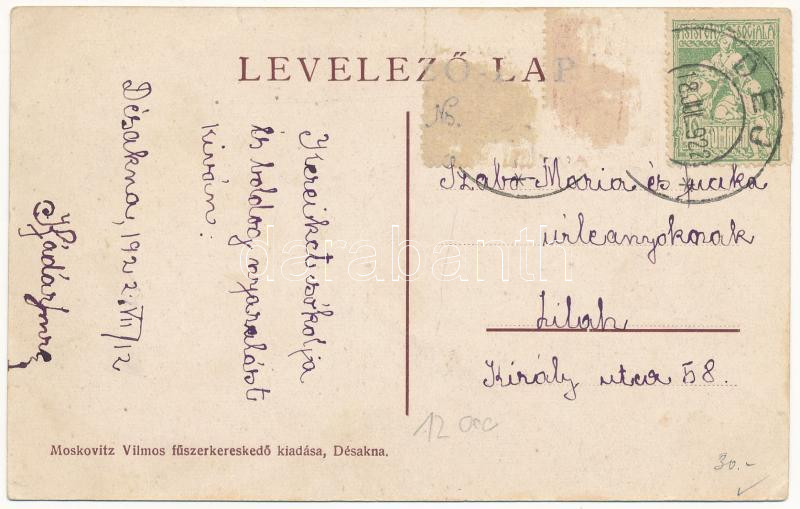 LEVELEZŐ-LAP
ASISTENȚA SOCIALĂ
DEJ
No.
Désakna, 1922 VII/12
Kereiket csókolja
és boldog nyaralást
kiván:
Kádár Imre
Szabó Mária és
úrleányoknak
Zilah
Király utca 58.
12
30.-
Moskovitz Vilmos fűszerkereskedő kiadása, Désakna.
darabanth